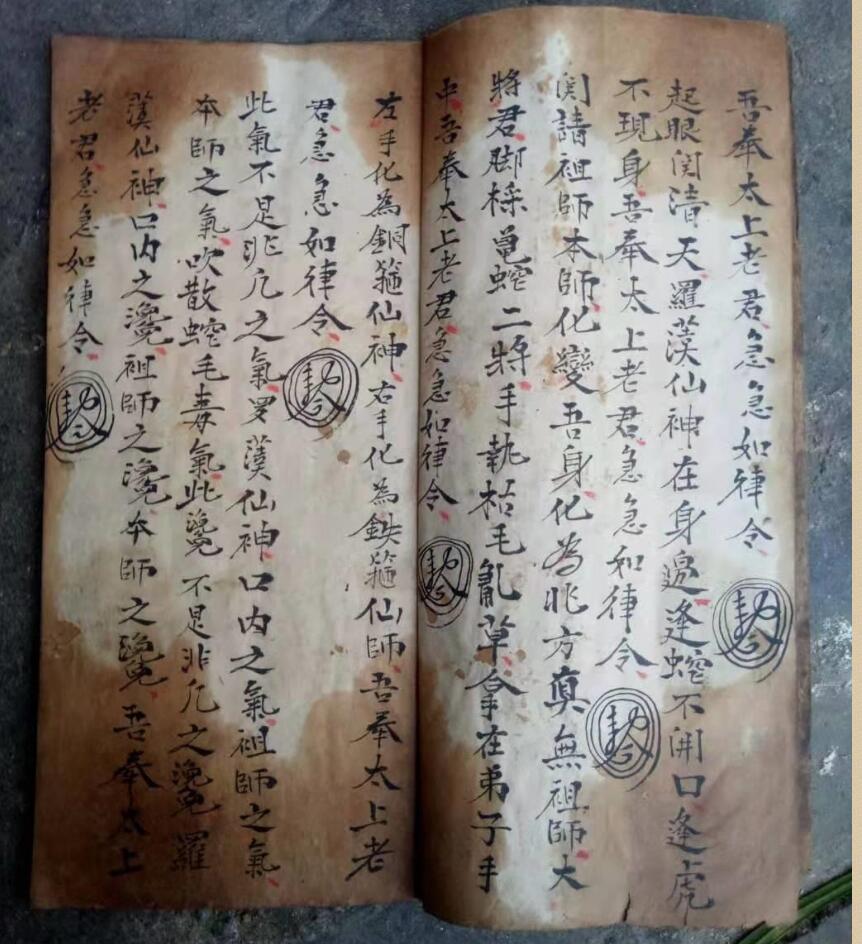 吾奉太上老君急急如律令
起眼関清天羅漢仙神在身邊逢蛇不開口逢虎
不現身吾奉太上老君急急如律令
関請祖師本師化變吾身化為北方真無祖師大
將君脚採黾蛇二將手執枯毛亂草拿在弟子手
中吾奉太上老君急急如律令
左手化為銅箍仙神右手化為鉄箍仙師吾奉太上老
君急急如律令
此氣不是非凢之氣罗漢仙神口内之氣祖師之氣
本師之氣吹散蛇毛毒氣此㵴不是非凢之㵴羅
漢仙神口内之㵴祖師之㵴本師之㵴吾奉太上
老君急急如律令